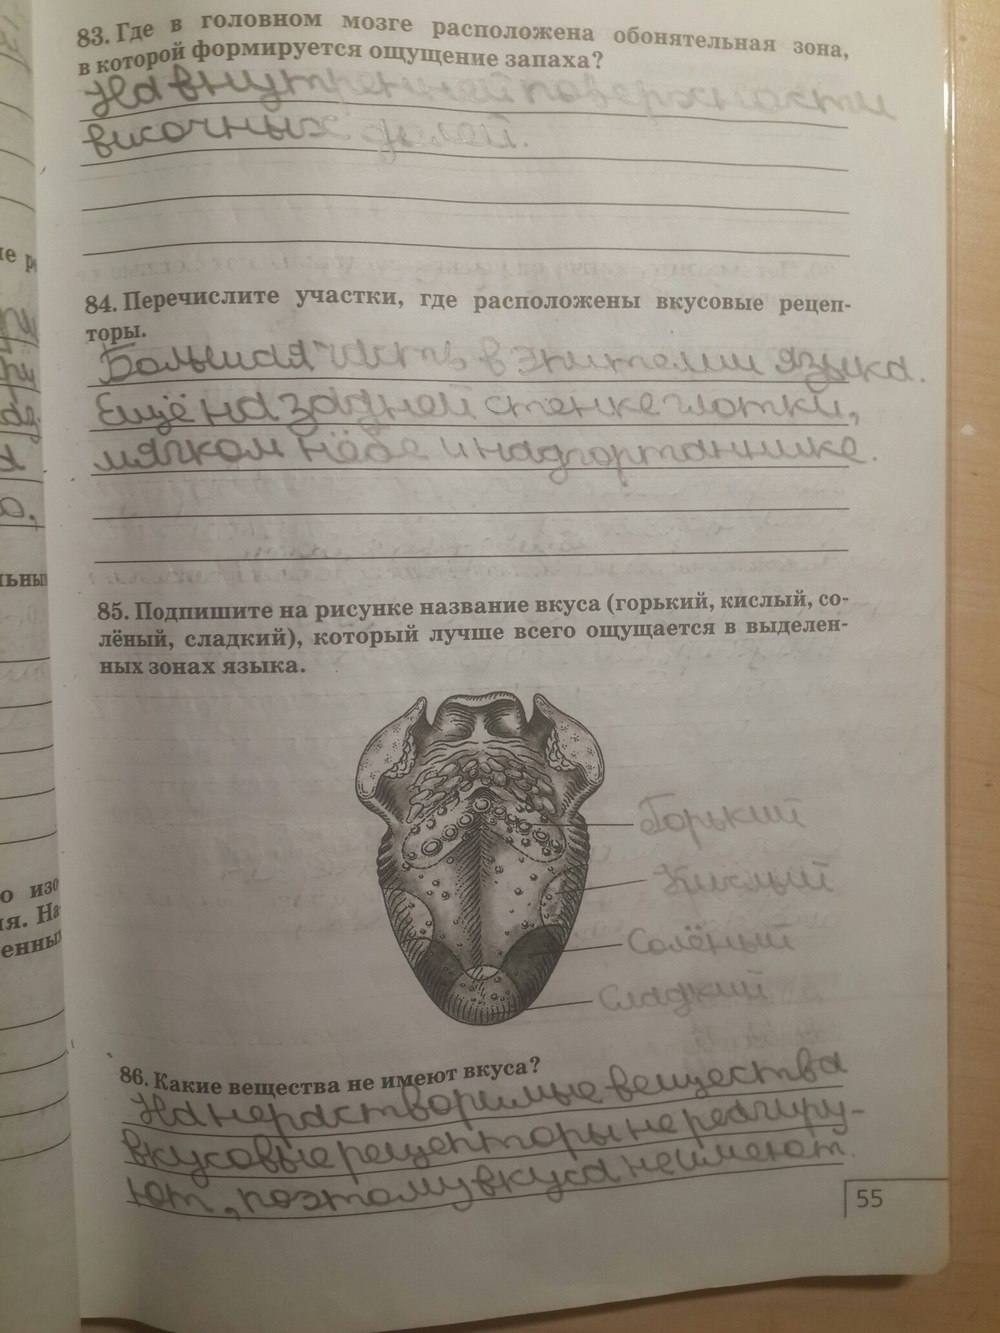 83. Где в головном мозге расположена обонятельная зона,
в которой формируется ощущение запаха?
На внутренней поверхности
височных долей.
84. Перечислите участки, где расположены вкусовые рецеп-
торы.
Большая часть в эпителии языка.
Ещё на задней стенке глотки,
мягком нёбе и надгортаннике.
85. Подпишите на рисунке название вкуса (горький, кислый, со-
лёный, сладкий), который лучше всего ощущается в выделен-
ных зонах языка.
Горький
Кислый
Солёный
Сладкий
86. Какие вещества не имеют вкуса?
На нерастворимые вещества
вкусовые рецепторы не реагиру-
ют, поэтому вкуса не имеют.
55